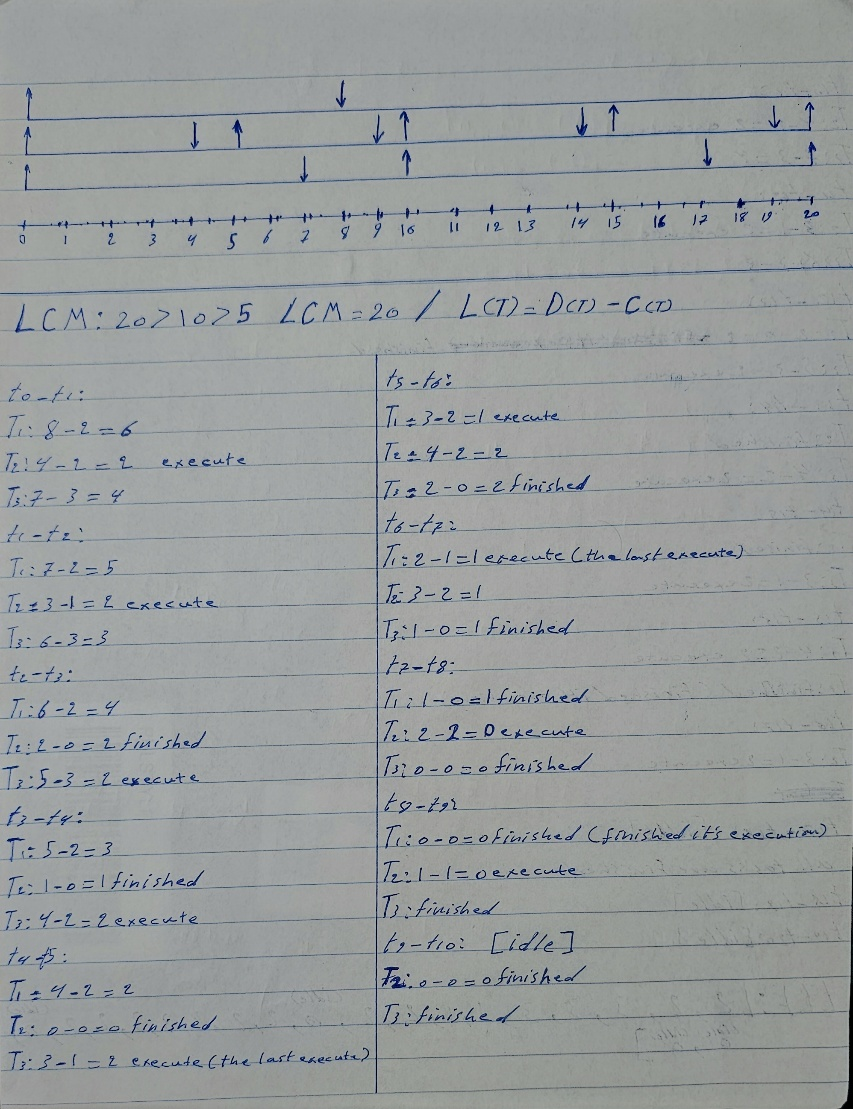 0 1 2 3 4 5 6 7 8 9 10 11 12 13 14 15 16 17 18 19 20
LCM: 20>10>5 LCM=20 / L(T)=D(T)-C(T)
t0-t1:
T1: 8-2=6
T2: 4-2=2 execute
T3: 7-3=4
t1-t2:
T1: 7-2=5
T2: 3-1=2 execute
T3: 6-3=3
t2-t3:
T1: 6-2=4
T2: 2-0=2 finished
T3: 5-3=2 execute
t3-t4:
T1: 5-2=3
T2: 1-0=1 finished
T3: 4-2=2 execute
t4-t5:
T1: 4-2=2
T2: 0-0=0 finished
T3: 3-1=2 execute (the last execute)
t5-t6:
T1: 3-2=1 execute
T2: 4-2=2
T3: 2-0=2 finished
t6-t7:
T1: 2-1=1 execute (the last execute)
T2: 3-2=1
T3: 1-0=1 finished
t7-t8:
T1: 1-0=1 finished
T2: 2-2=0 execute
T3: 0-0=0 finished
t8-t9:
T1: 0-0=0 finished (finished it's execution)
T2: 1-1=0 execute
T3: finished
t9-t10: [idle]
T2: 0-0=0 finished
T3: finished